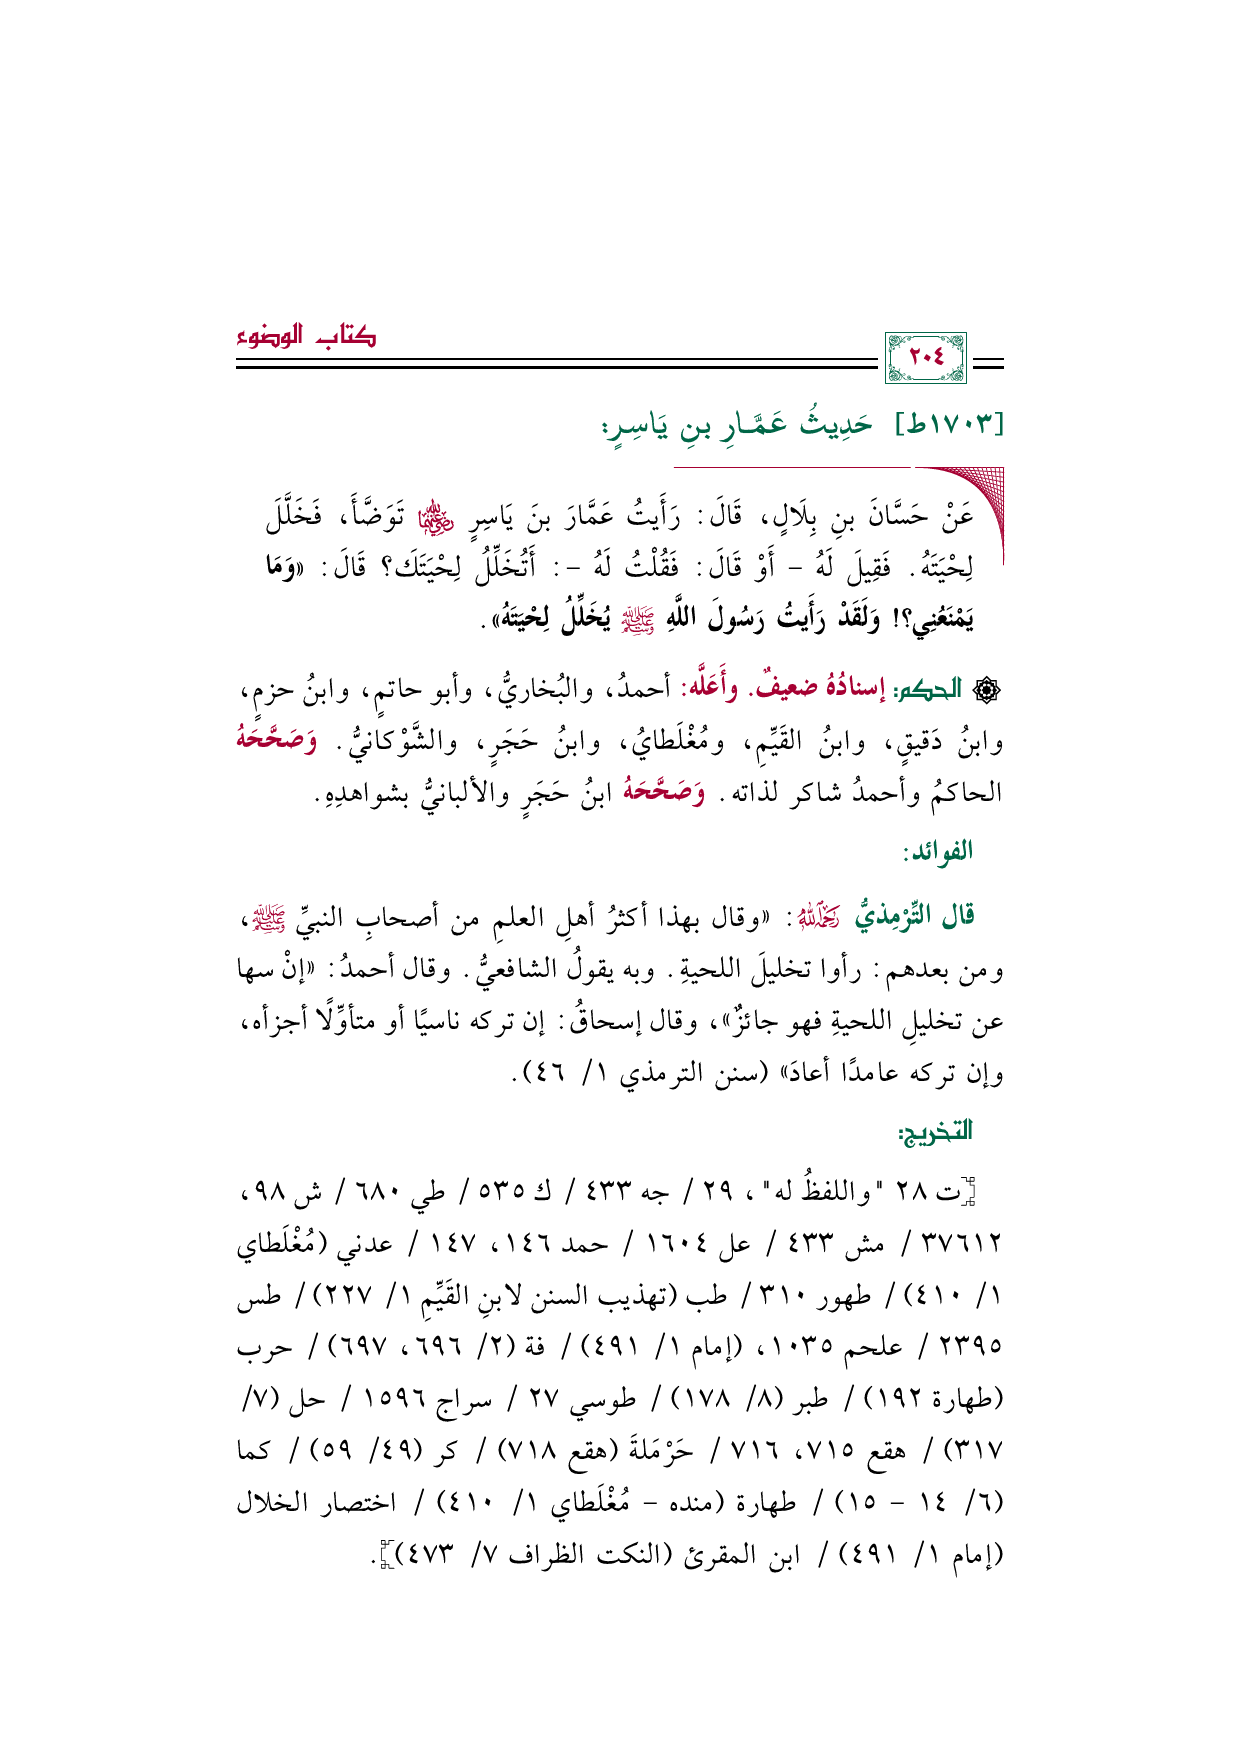 كتاب الوضوء
٢٠٤
[١٧٠٣ط] حَدِيثُ عَمَّارِ بنِ يَاسِرٍ:
عَنْ حَسَّانَ بنِ بِلَالٍ، قَالَ: رَأَيتُ عَمَّارَ بنَ يَاسِرٍ رضي الله عنهما تَوَضَّأَ، فَخَلَّلَ
لِحْيَتَهُ. فَقِيلَ لَهُ - أَوْ قَالَ: فَقُلْتُ لَهُ -: أَتُخَلِّلُ لِحْيَتَكَ؟ قَالَ: «وَمَا
يَمْنَعُنِي؟! وَلَقَدْ رَأَيتُ رَسُولَ اللَّهِ ﷺ يُخَلِّلُ لِحْيَتَهُ».
الحكم: إسنادُهُ ضعيفٌ. وأَعَلَّه: أحمدُ، والبُخاريُّ، وأبو حاتمٍ، وابنُ حزمٍ،
وابنُ دَقيقٍ، وابنُ القَيِّمِ، ومُغْلَطايُ، وابنُ حَجَرٍ، والشَّوْكانيُّ. وَصَحَّحَهُ
الحاكمُ وأحمدُ شاكر لذاته. وَصَحَّحَهُ ابنُ حَجَرٍ والألبانيُّ بشواهدِهِ.
الفوائد:
قال التِّرْمِذيُّ رحمه الله: «وقال بهذا أكثرُ أهلِ العلمِ من أصحابِ النبيِّ ﷺ،
ومن بعدهم: رأوا تخليلَ اللحيةِ. وبه يقولُ الشافعيُّ. وقال أحمدُ: «إنْ سها
عن تخليلِ اللحيةِ فهو جائزٌ»، وقال إسحاقُ: إن تركه ناسيًا أو متأوِّلًا أجزأه،
وإن تركه عامدًا أعادَ» (سنن الترمذي ١/ ٤٦).
التخريج:
[ت ٢٨ "واللفظُ له"، ٢٩ / جه ٤٣٣ / ك ٥٣٥ / طي ٦٨٠ / ش ٩٨،
٣٧٦١٢ / مش ٤٣٣ / عل ١٦٠٤ / حمد ١٤٦، ١٤٧ / عدني (مُغْلَطاي
١/ ٤١٠) / طهور ٣١٠ / طب (تهذيب السنن لابنِ القَيِّمِ ١/ ٢٢٧) / طس
٢٣٩٥ / علحم ١٠٣٥، (إمام ١/ ٤٩١) / فة (٢/ ٦٩٦، ٦٩٧) / حرب
(طهارة ١٩٢) / طبر (٨/ ١٧٨) / طوسي ٢٧ / سراج ١٥٩٦ / حل (٧/
٣١٧) / هقع ٧١٥، ٧١٦ / حَرْمَلةَ (هقع ٧١٨) / كر (٤٩/ ٥٩) / كما
(٦/ ١٤ - ١٥) / طهارة (منده - مُغْلَطاي ١/ ٤١٠) / اختصار الخلال
(إمام ١/ ٤٩١) / ابن المقرئ (النكت الظراف ٧/ ٤٧٣)].